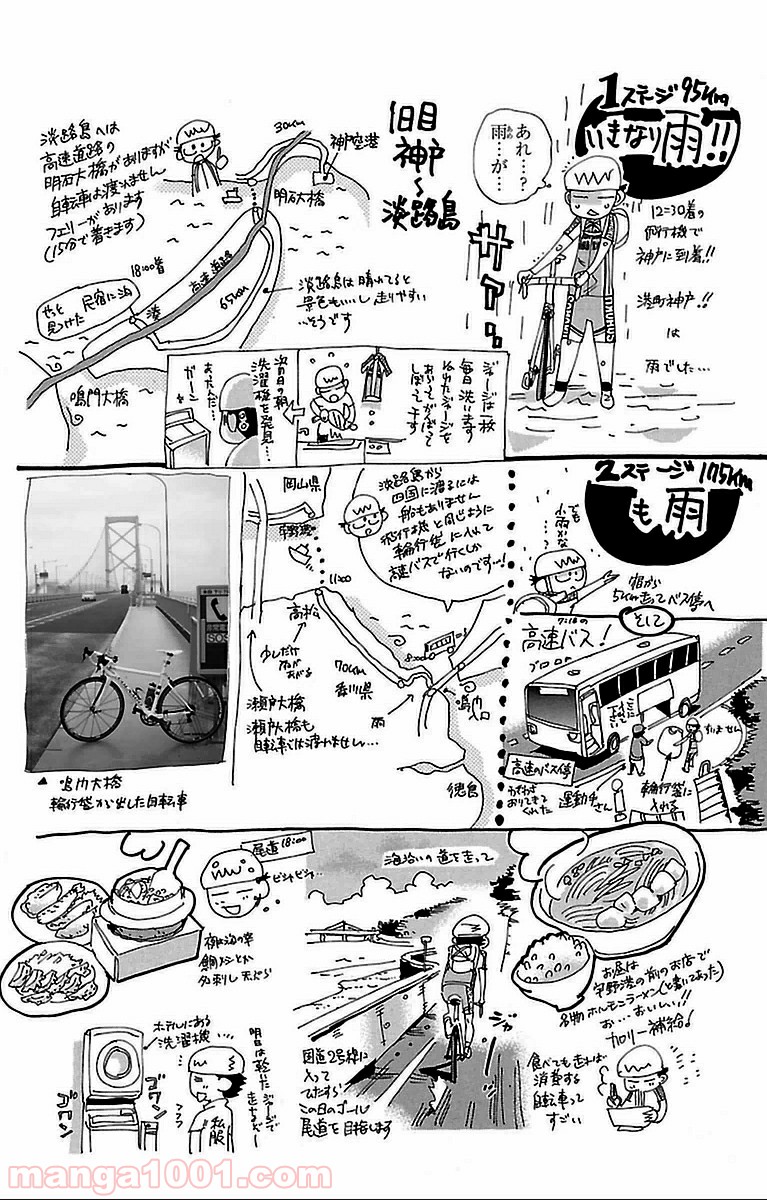 1ステージ 95km
いきなり雨!!
あれ…?
雨…が…
12=30着の
飛行機で
神戸に到着!!
港町神戸!!
は
雨でした…
ザァーッ
1日目
神戸
〜
淡路島
30km
神戸空港
明石大橋
淡路島へは
高速道路の
明石大橋がありますが
自転車は渡れません
フェリーがあります
(15分で着きます)
18:00着
高速道路
65km
湊
やっと
見つけた民宿に泊
淡路島は晴れてると
景色もいいし走りやすい
…そうです
鳴門大橋
ジャージは一枚
毎日洗います
ぬれたジャージを
しぼってます
翌日の朝
洗濯機を発見…
あったんだ…
ガーン
2ステージ 175km
も雨
でも
小雨かな
…
宿から
5km走ってバス停へ
そして
7:10の
高速バス!
ブロロロ
下に入れて下さい
すいません
高速のバス停
わざわざ
おりてきて
くれた
運動手さん
輪行袋に
入れる
淡路島から
四国に渡るには
船もありません
飛行機と同じように
輪行袋に入れて
高速バスで行くしか
ないのです…!
岡山県
宇野港
11:00
高松
少しだけ
雨があがる
70km
香川県
8:00
鳴門
雨
徳島
瀬戸大橋
瀬戸大橋も
自転車では渡れません…
SOS
▲鳴門大橋
輪行袋から出した自転車
お昼は
宇野港の前のお店で
名物ホルモンラーメン(と書いてあった)
お…おいしい!!
カロリー補給!
食べても走れば
消費する
自転車って
すごい
海沿いの道を走って
ジャ
国道2号線に
入って
ひたすら
この日のゴール
尾道を目指します
尾道 18:00
ビシャビシャ…
夜は海の幸
鯛メシとか
お刺し 天ぷら
ホテルにある
洗濯機…
…
ゴウン
ゴウン
明日は乾いたジャージで
走れるぞー
フフフ
私服
manga1001.com